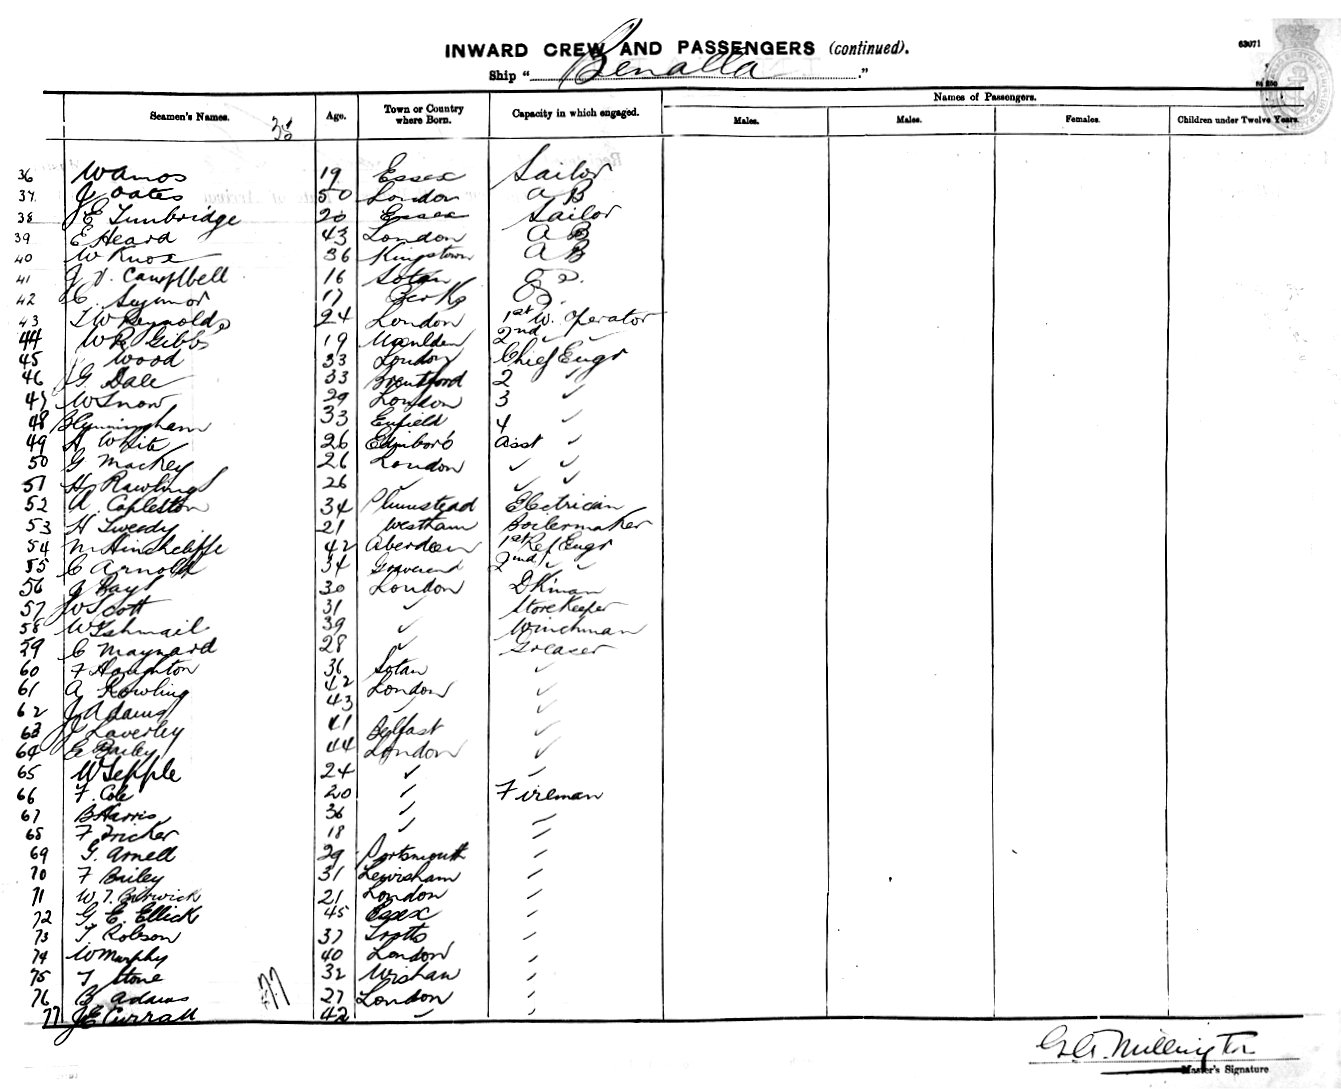 INWARD CREW AND PASSENGERS (continued).
63071
Ship "Benalla."
Seamen's Names. 35 Age. Town or Country where Born. Capacity in which engaged. Names of Passengers.
Males. Males. Females. Children under Twelve Years.
36 W Amos 19 Essex Sailor
37 J Oates 50 London A B
38 J E Tunbridge 20 Essex Sailor
39 E Heard 43 London A B
40 W Knox 36 Kingstown A B
41 J Campbell 16 Soton
42 C. Seymor 17 Berks
43 T W Reynolds 24 London 1st W. Operator
44 W R Gibbs 19 Maulden 2nd " "
45 J Wood 33 London Chief Engr
46 G Dale 33 Brentford 2 "
47 W Snow 29 London 3 "
48 B Cunningham 33 Enfield 4 "
49 A White 26 Edinboro Asst "
50 G Mackey 26 London " "
51 H Rawlings 26 " " "
52 A. Capleton 34 Plumstead Electrician
53 H Tweedy 21 Westham Boilermaker
54 M Hinchcliffe 42 Aberdeen 1st Ref Engr
55 C Arnold 34 Gravesend 2nd " "
56 J Bays 30 London DKman
57 W Scott 31 " StoreKeeper
58 W Ishmail 39 " Winchman
59 C Maynard 28 " Greaser
60 F Houghton 36 Sotan "
61 A Rowling 42 London "
62 J Adams 43 " "
63 J Laverley 41 Belfast "
64 E Bailey 44 London "
65 W Sepple 24 " "
66 F. Cole 20 " Fireman
67 B Harris 36 " "
68 F Fricker 18 " "
69 G. Arnell 29 Portsmouth "
70 F Bailey 31 Lewisham "
71 W T. Barwick 21 London "
72 G E. Ellick 45 Essex "
73 T Robson 37 "
74 W Murphy 40 London "
75 T Stone 32 Wishaw "
76 B Adams 27 London "
77 J E Curran 42 " "
77
G A. Millington
Master's Signature